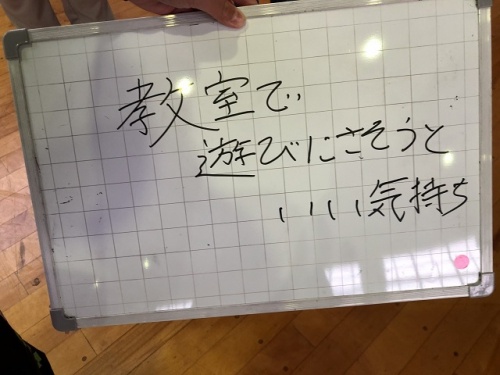 教室で
遊びにさそうと
いい気持ち